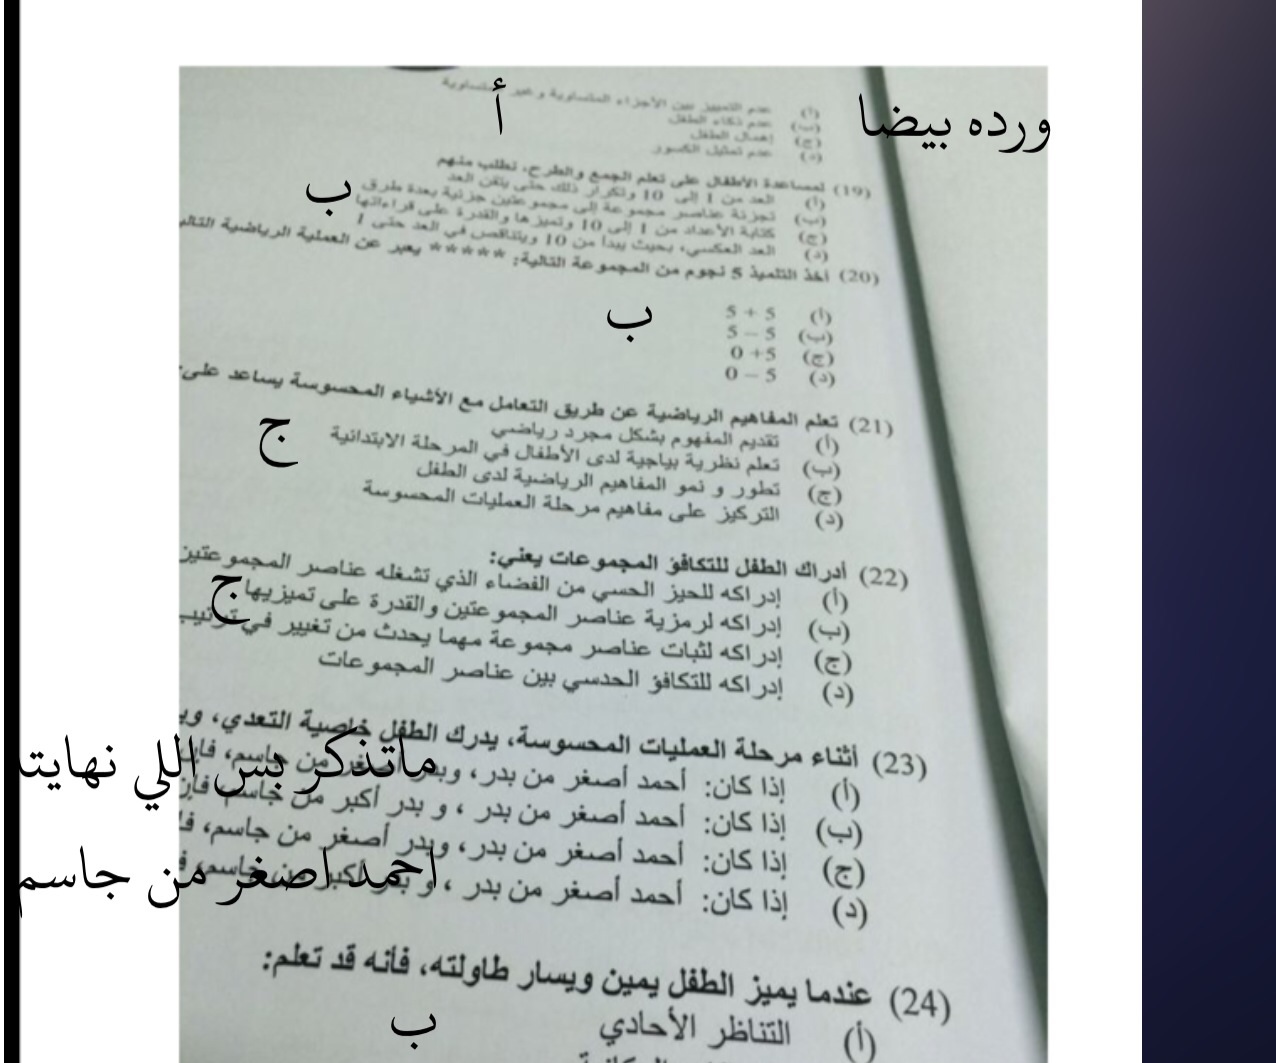 (أ) عدم التمييز بين الأجزاء المتساوية وغير المتساوية
أ
ورده بيضا
(ب) عدم ذكاء الطفل
(ج) إهمال الطفل
(د) عدم تمثيل الكسور
(19) لمساعدة الأطفال على تعلم الجمع والطرح، نطلب منهم
(أ) العد من 1 إلى 10 وتكرار ذلك حتى يتقن العد
ب
(ب) تجزئة عناصر مجموعة إلى مجموعتين جزئية بعدة طرق
(ج) كتابة الأعداد من 1 إلى 10 وتميزها والقدرة على قراءتها
(د) العد العكسي، بحيث يبدأ من 10 ويتناقص في العد حتى 1
(20) أخذ التلميذ 5 نجوم من المجموعة التالية: ***** يعبر عن العملية الرياضية التالي
(أ) 5 + 5
ب
(ب) 5 – 5
(ج) 0 +5
(د) 0 – 5
(21) تعلم المفاهيم الرياضية عن طريق التعامل مع الأشياء المحسوسة يساعد على:
(أ) تقديم المفهوم بشكل مجرد رياضي
ج
(ب) تعلم نظرية بياجية لدى الأطفال في المرحلة الابتدائية
(ج) تطور و نمو المفاهيم الرياضية لدى الطفل
(د) التركيز على مفاهيم مرحلة العمليات المحسوسة
(22) أدراك الطفل للتكافؤ المجموعات يعني:
(أ) إدراكه للحيز الحسي من الفضاء الذي تشغله عناصر المجموعتين
ج
(ب) إدراكه لرمزية عناصر المجموعتين والقدرة على تميزيها
(ج) إدراكه لثبات عناصر مجموعة مهما يحدث من تغيير في ترتيب
(د) إدراكه للتكافؤ الحدسي بين عناصر المجموعات
(23) أثناء مرحلة العمليات المحسوسة، يدرك الطفل خاصية التعدي، وي
ماتذكر بس اللي نهايته
(أ) إذا كان: أحمد أصغر من بدر، وبدر أصغر من جاسم، فإن
(ب) إذا كان: أحمد أصغر من بدر ، و بدر أكبر من جاسم فإن
(ج) إذا كان: أحمد أصغر من بدر، وبدر أصغر من جاسم، فا
احمد اصغر من جاسم
(د) إذا كان: أحمد أصغر من بدر ، و بدر أكبر من جاسم، ف
(24) عندما يميز الطفل يمين ويسار طاولته، فأنه قد تعلم:
(أ) التناظر الأحادي
ب